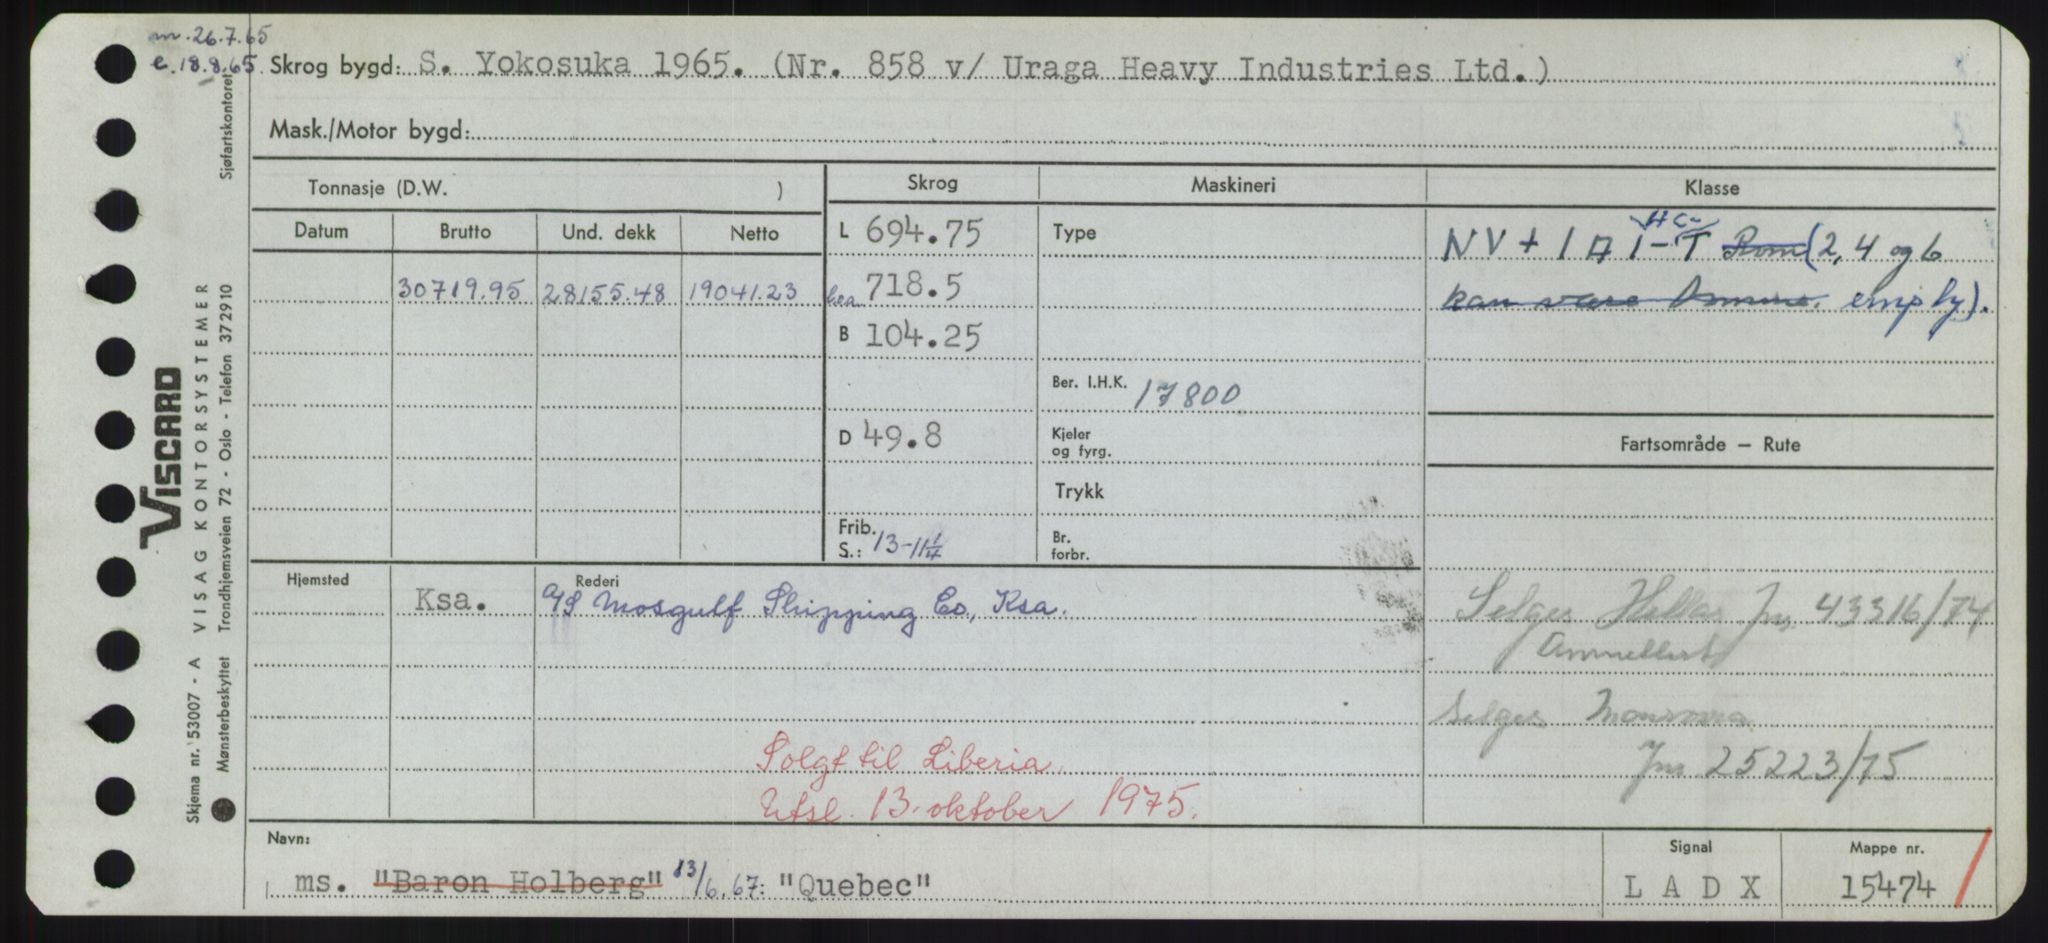 m. 26.7.65
e. 18.8.65
Skrog bygd: S. Yokosuka 1965. (Nr. 858 v/ Uraga Heavy Industries Ltd.)
Mask./Motor bygd:
Tonnasje (D.W. )
Skrog
Maskineri
Klasse
Datum
Brutto
Und. dekk
Netto
30719.95
28155.48
19041.23
L 694.75
718.5
B 104.25
D 49.8
Frib.
S.: 13-11 1/4
Type
Ber. I.H.K. 17800
Kjeler
og fyrg.
Trykk
Br.
forbr.
HC
NV + 1 A 1 - T Rom (2, 4 og 6
kan være tomme. empty).
Fartsområde — Rute
Selges Hellas Jnr. 43316/74
Annullert
Selges Monrovia
Jnr 25223/75
Hjemsted
Ksa.
Rederi
A/S Mosgulf Shipping Co, Ksa.
Solgt til Liberia.
Utsl. 13. oktober 1975.
Navn:
ms. "Baron Holberg" 13/6.67: "Quebec"
Signal
L A D X
Mappe nr.
15474
Sjøfartskontoret
VISCARD
VISAG KONTORSYSTEMER
Trondhjemsveien 72 - Oslo - Telefon 372910
Skjema nr. 53007 - A
Mønsterbeskyttet